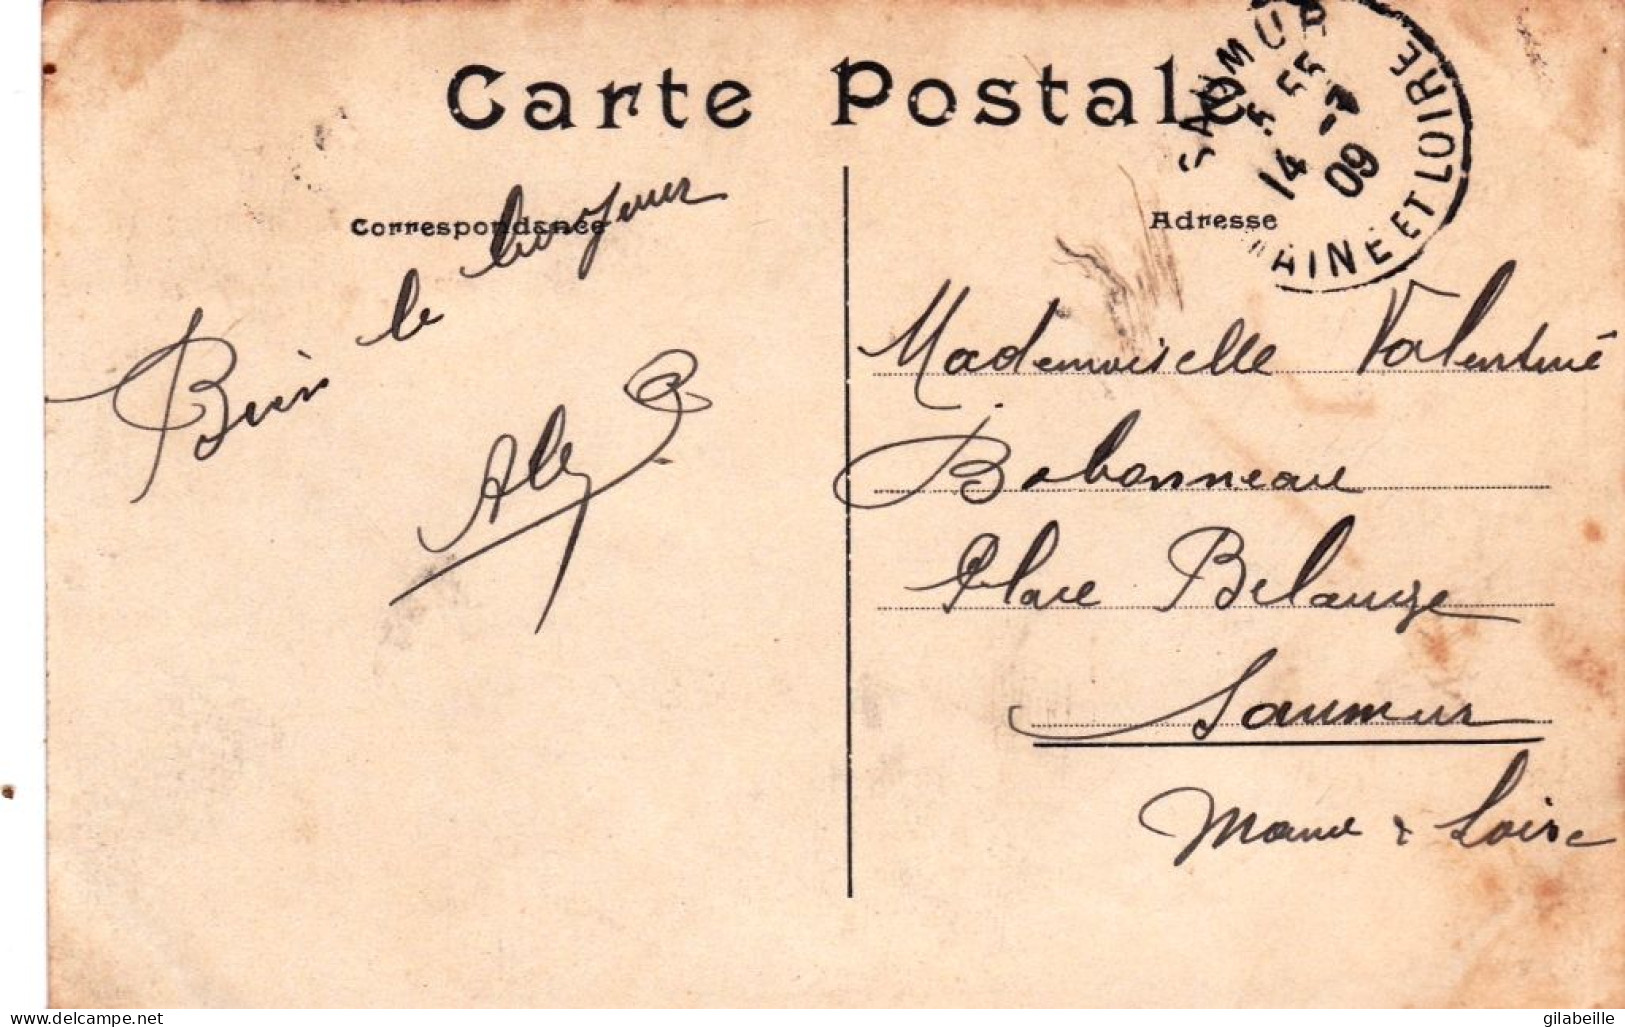 Carte Postale
SAUMUR
5 55
14 -7
09
MAINE ET LOIRE
Correspondance
Adresse
Bien le bonjour
Alex
Mademoiselle Valentine
Babonneau
Place Belange
Saumur
Maine & Loire
delcampe.net
gilabeille